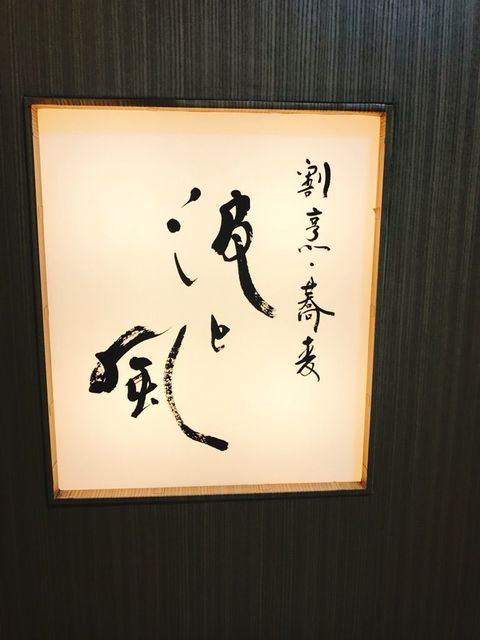 割烹・蕎麦
波と風